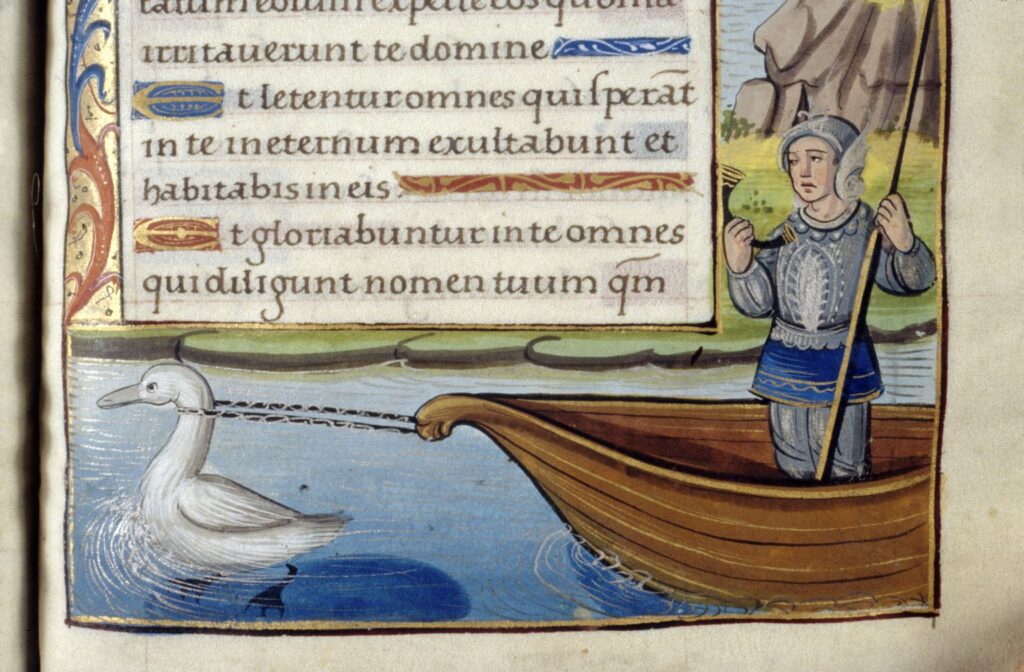 tatum eorum expelle eos quonia
irritaverunt te domine
Et letentur omnes qui sperāt
in te in eternum exultabunt et
habitabis in eis.
Et gloriabuntur in te omnes
qui diligunt nomen tuum qm̄